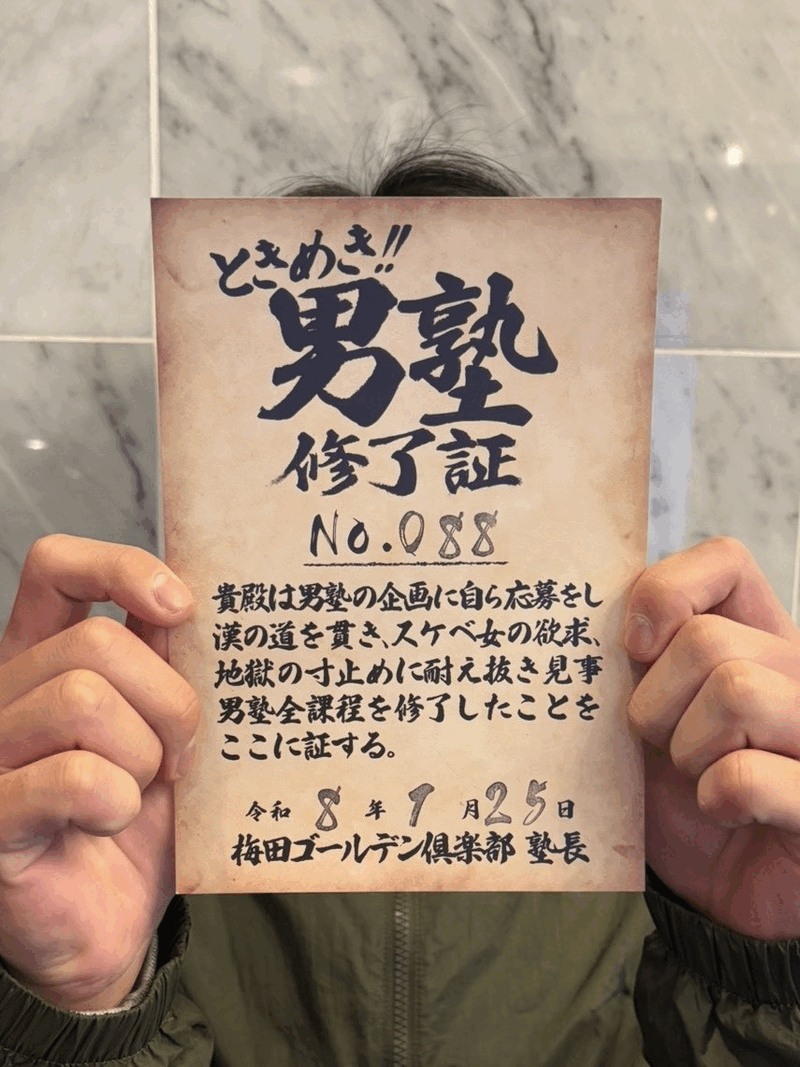 ときめき!!
男塾
修了証
No.088
貴殿は男塾の企画に自ら応募をし
漢の道を貫き、スケベ女の欲求、
地獄の寸止めに耐え抜き見事
男塾全課程を修了したことを
ここに証する。
令和 8 年 1 月 25 日
梅田ゴールデン倶楽部 塾長